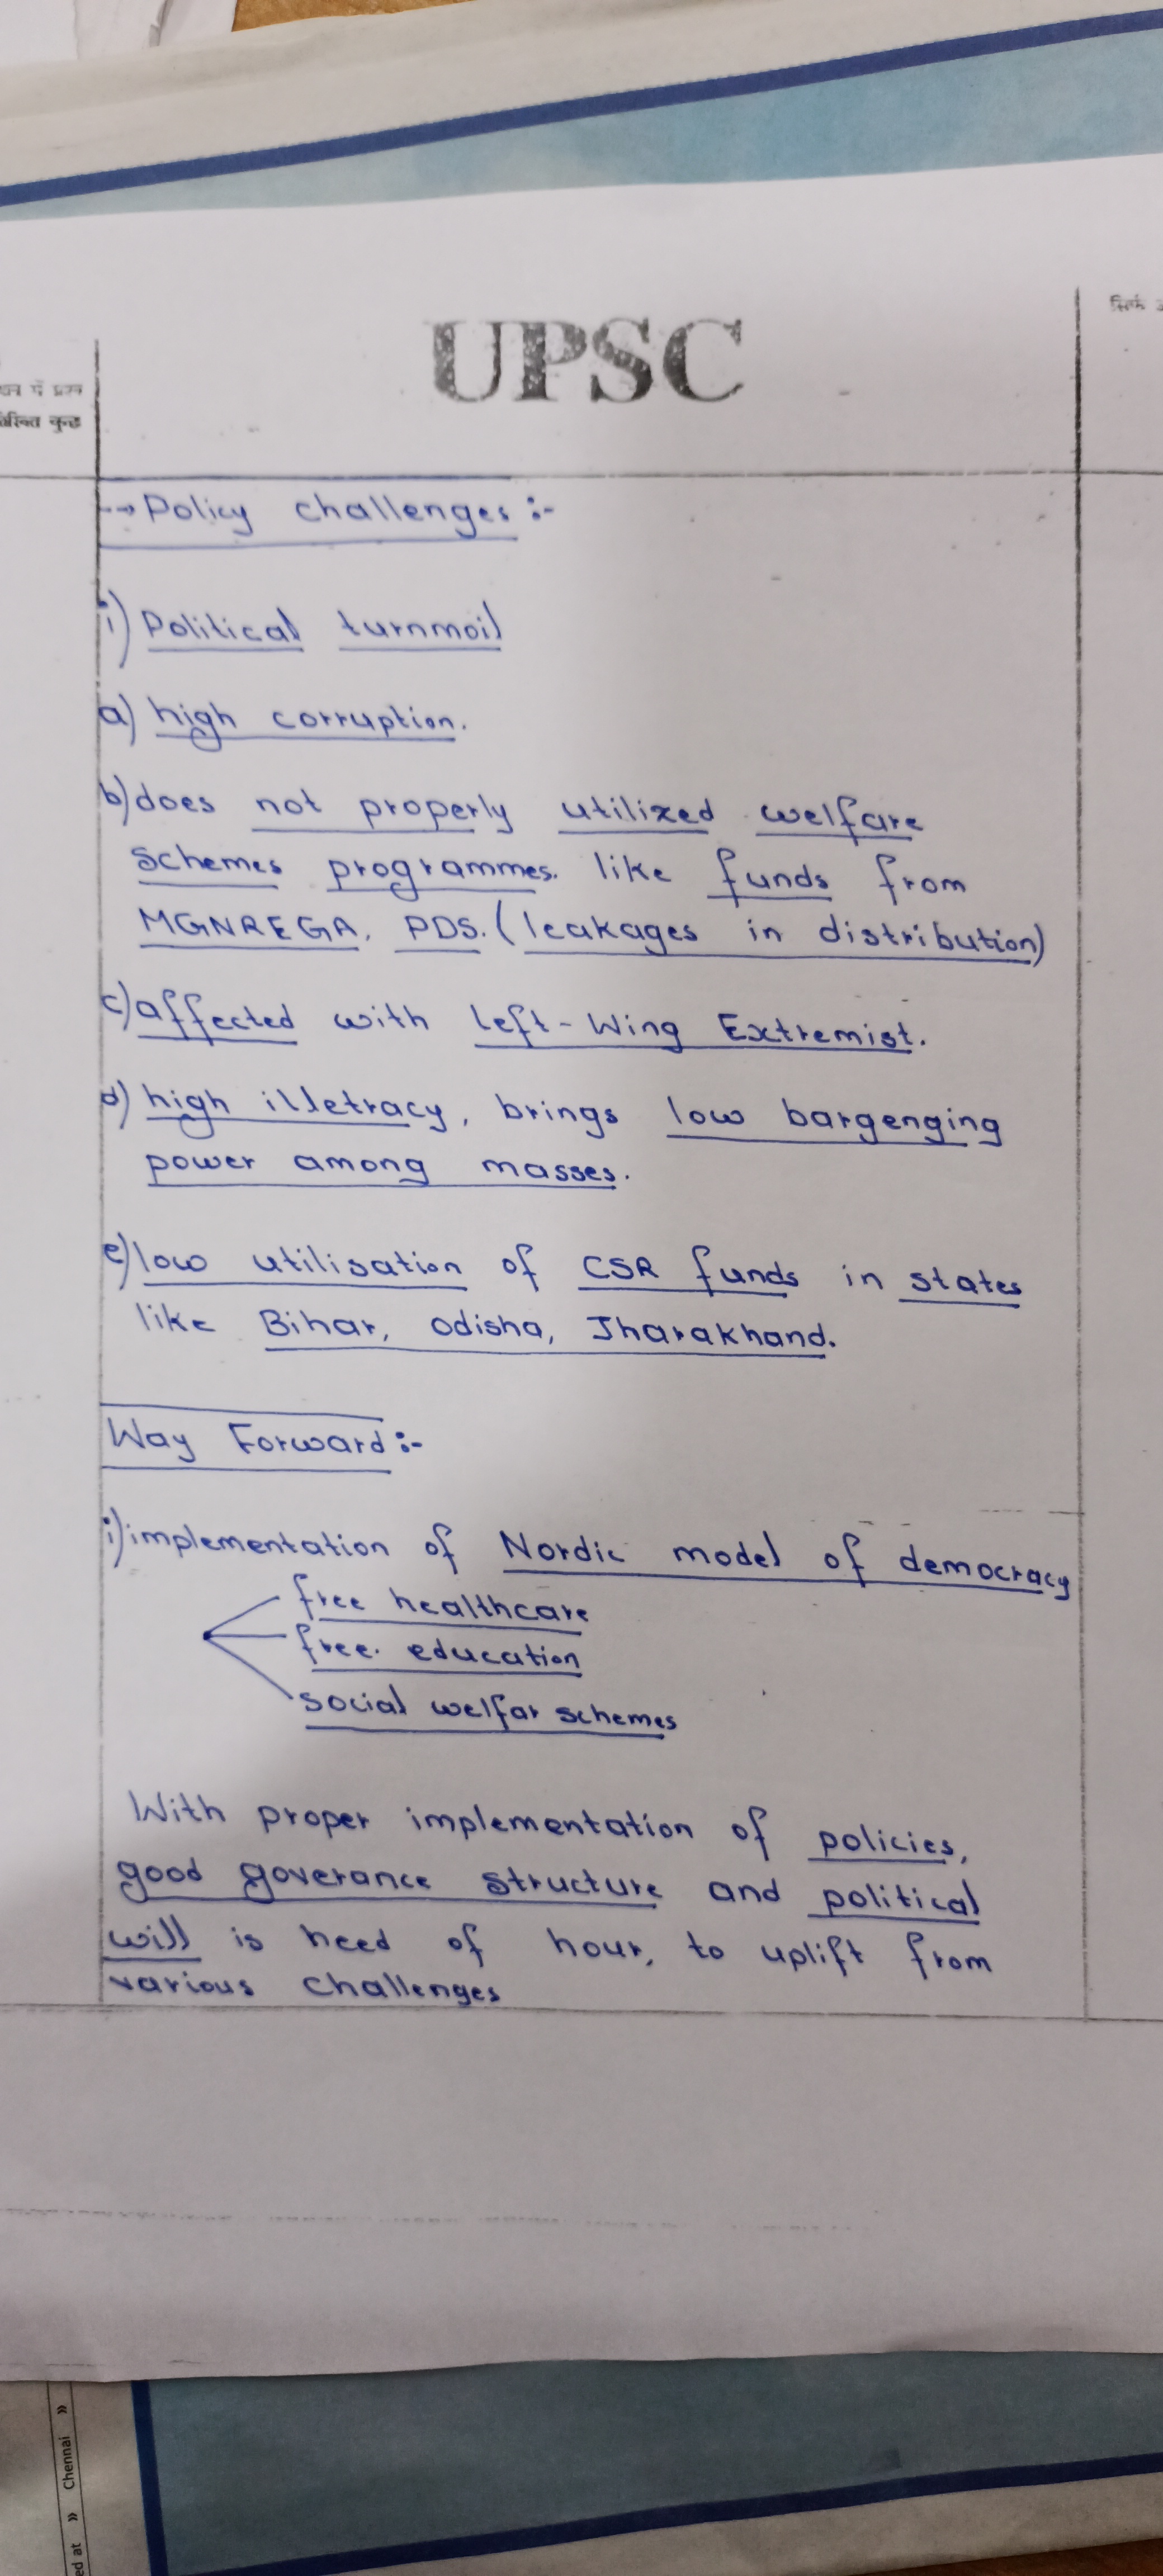 सिर्फ
UPSC
→ Policy challenges :-
i) Political turnmoil
a) high corruption.
b) does not properly utilized welfare
schemes programmes. like funds from
MGNREGA, PDS. (leakages in distribution)
c) affected with Left-Wing Extremist.
d) high illetracy, brings low bargenging
power among masses.
e) low utilisation of CSR funds in states
like Bihar, Odisha, Jharakhand.
Way Forward :-
i) implementation of Nordic model of democracy
free healthcare
free. education
social welfar schemes
With proper implementation of policies,
good goverance structure and political
will is need of hour, to uplift from
various challenges
ed at » Chennai »